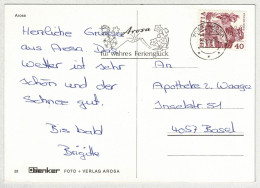 Arosa
Herrliche Grüsse
aus Arosa. Das
Wetter ist sehr
schön und der
Schnee gut.
Bis bald
Brigitte
Arosa
für wahres Ferienglück
40
An
Apotheke z. Waage
Inselstr. 51
4057 Basel
FOTO + VERLAG AROSA